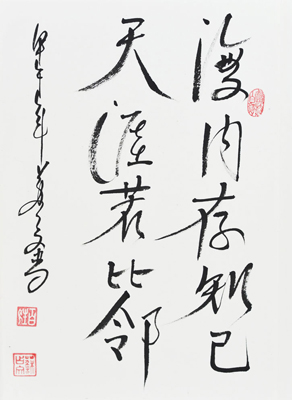 海内存知己
天涯若比邻
甲午年